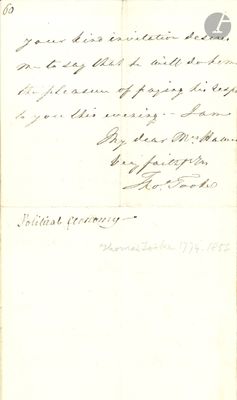 60
your kind invitation desires
me to say that he will do
the pleasure of paying his
to you this evening — I am
My dear Mrs
very faithfully
Thos. Tooke
Political Economy —
Thomas Tooke 1774. 1858